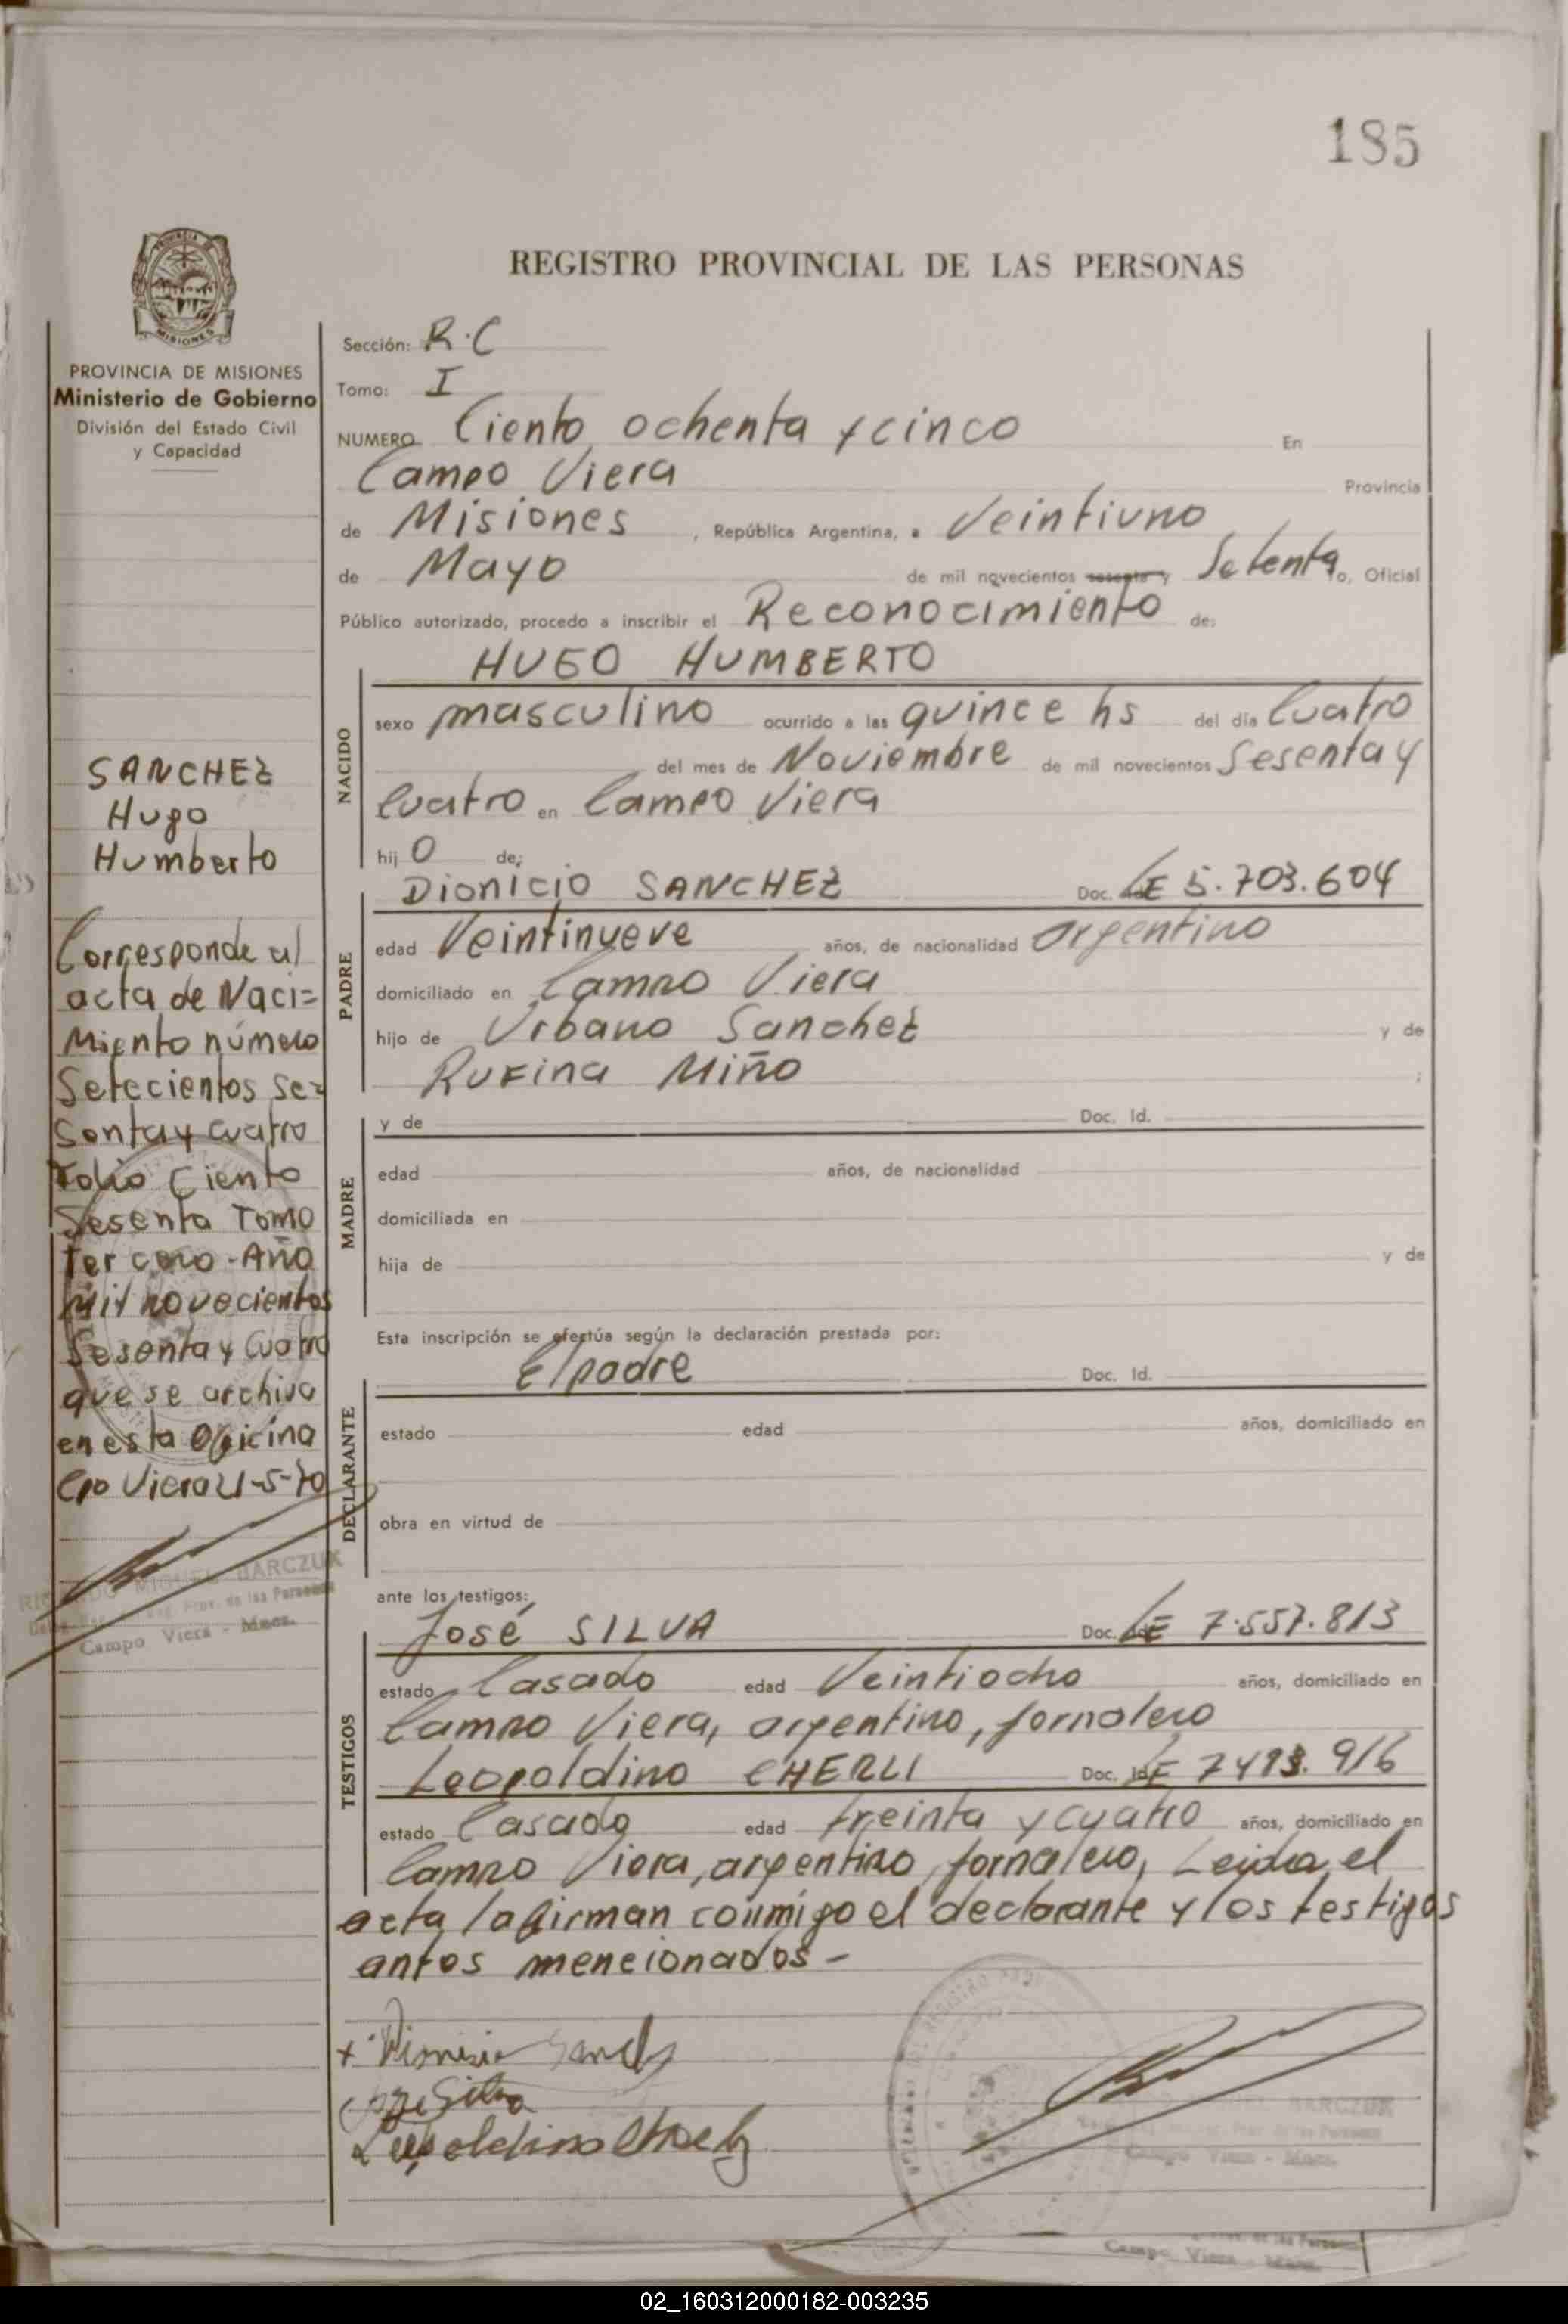 185
REGISTRO PROVINCIAL DE LAS PERSONAS
MISIONES
PROVINCIA DE MISIONES
Ministerio de Gobierno
División del Estado Civil
y Capacidad
SANCHEZ
Hugo
Humberto
Corresponde al
acta de Naci=
Miento número
Setecientos se=
senta y cuatro
Folio Ciento
Sesenta Tomo
Tercero - Año
Mil novecientos
Sesenta y Cuatro
que se archiva
en esta Oficina
Cpo Viera 21-5-70
MIGUEL BARCZUK
Prov. de las Personas
Campo Viera - Mnes.
Sección: R.C
Tomo: I
NUMERO Ciento ochenta y cinco En
Campo Viera Provincia
de Misiones , República Argentina, a Veintiuno
de Mayo de mil novecientos sesenta y Setenta o, Oficial
Público autorizado, procedo a inscribir el Reconocimiento de:
NACIDO
HUGO HUMBERTO
sexo masculino ocurrido a las quince hs del día Cuatro
del mes de Noviembre de mil novecientos Sesenta y
Cuatro en Campo Viera
hij o de;
PADRE
DIONICIO SANCHEZ Doc. LE 5.703.604
edad Veintinueve años, de nacionalidad argentino
domiciliado en Campo Viera
hijo de Urbano Sanchez y de
Rufina Miño ;
MADRE
y de Doc. Id.
edad años, de nacionalidad
domiciliada en
hija de y de
Esta inscripción se efectúa según la declaración prestada por:
DECLARANTE
El padre Doc. Id.
estado edad años, domiciliado en
obra en virtud de
ante los testigos:
TESTIGOS
José SILVA Doc. LE 7.557.813
estado Casado edad Veintiocho años, domiciliado en
Campo Viera, argentino, jornalero
Leopoldino Doc. Id. LE 916
estado Casado edad treinta y cuatro años, domiciliado en
Campo Viera, argentino, jornalero, Leida el
acta la firman conmigo el declarante y los testigos
antes mencionados -
BARCZUK
Campo Viera - Mnes.
Campo Viera - Mnes.
02_160312000182-003235